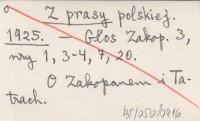 Z prasy polskiej.
1925. — Głos Zakop. 3,
nry 1, 3-4, 7, 20.
O Zakopanem i Ta-
trach.